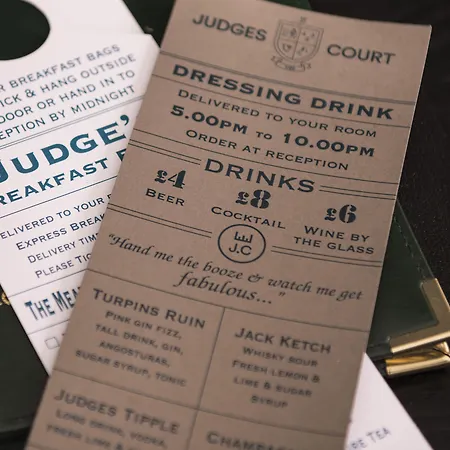 JUDGES COURT
DRESSING DRINK
DELIVERED TO YOUR ROOM
5.00PM TO 10.00PM
ORDER AT RECEPTION
DRINKS
£4
BEER
£8
COCKTAIL
£6
WINE BY
THE GLASS
J.C
"Hand me the booze & watch me get
fabulous..."
TURPINS RUIN
PINK GIN FIZZ,
TALL DRINK, GIN,
ANGOSTURAR,
SUGAR SYRUP, TONIC
JACK KETCH
WHISKY SOUR
FRESH LEMON &
LIME & SUGAR
SYRUP
JUDGES TIPPLE
LONG DRINK, VODKA,
FRESH LIME &
BREAKFAST BAGS
& HANG OUTSIDE
DOOR OR HAND IN TO
BY MIDNIGHT
JUDGE'
DELIVERED TO YOUR
EXPRESS
DELIVERY
PLEASE
THE
TEA